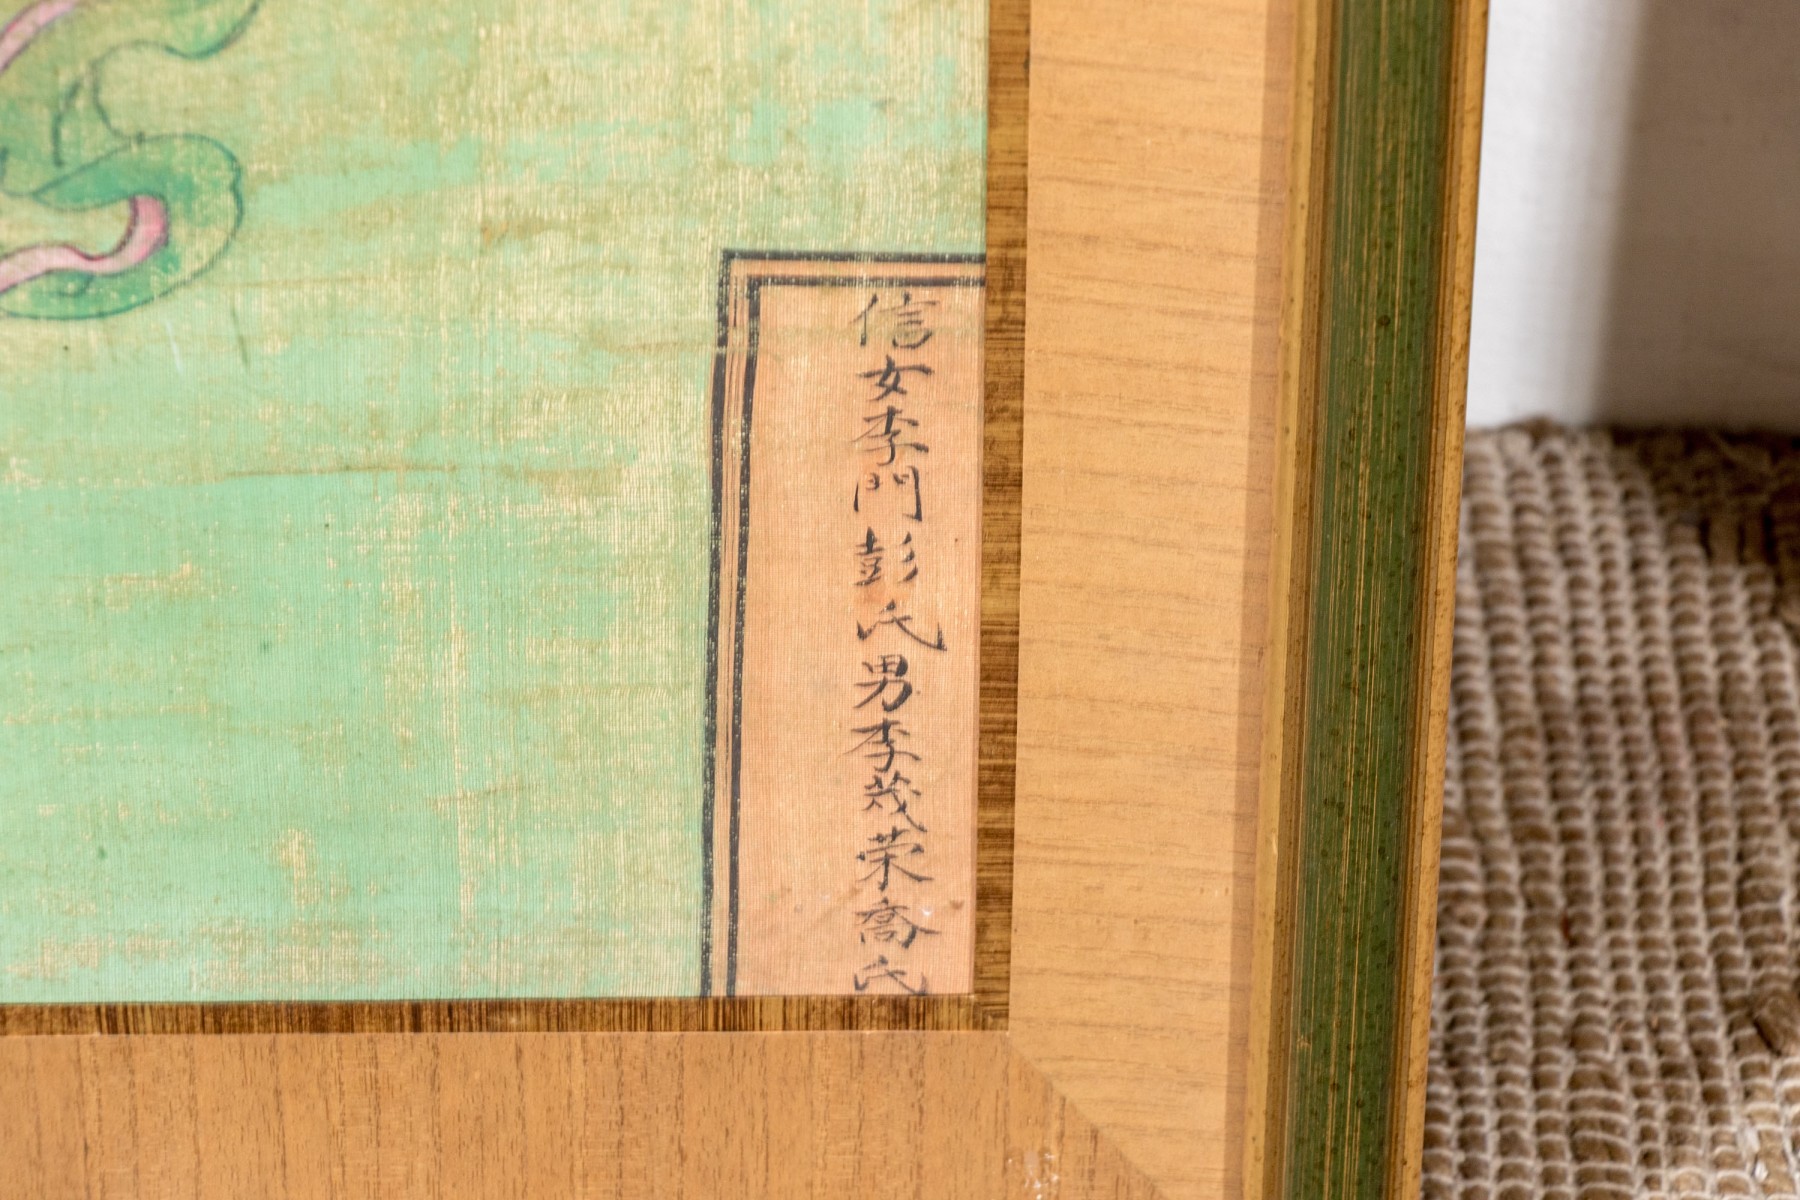 信女李門彭氏男李茂荣喬氏